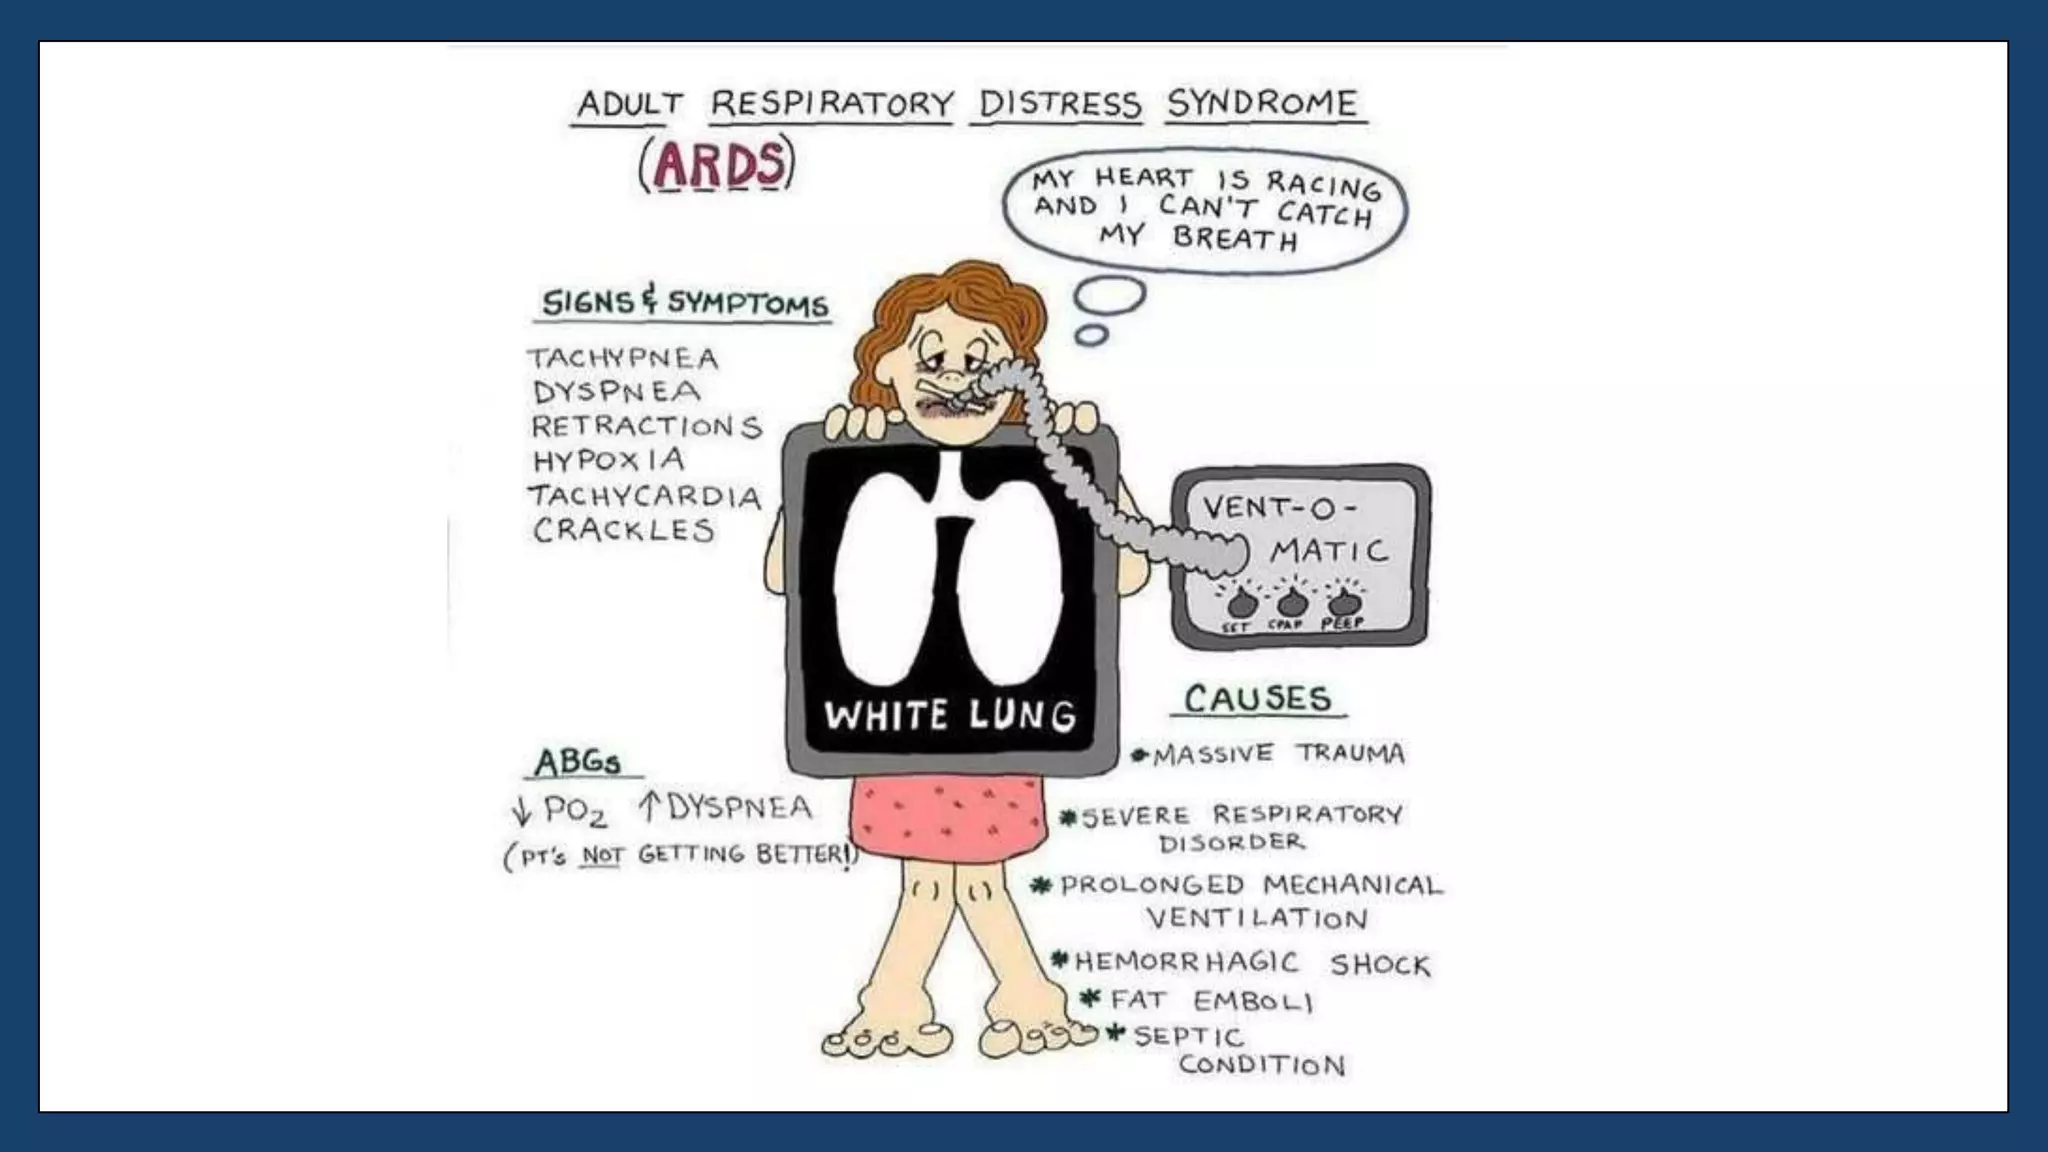 ADULT RESPIRATORY DISTRESS SYNDROME
(ARDS)
MY HEART IS RACING
AND I CAN'T CATCH
MY BREATH
SIGNS & SYMPTOMS
TACHYPNEA
DYSPNEA
RETRACTIONS
HYPOXIA
TACHYCARDIA
CRACKLES
VENT-O-
MATIC
CPAP PEEP
WHITE LUNG
ABGs
↓ PO₂ ↑ DYSPNEA
(PT's NOT GETTING BETTER!)
CAUSES
* MASSIVE TRAUMA
* SEVERE RESPIRATORY
DISORDER
* PROLONGED MECHANICAL
VENTILATION
* HEMORRHAGIC SHOCK
* FAT EMBOLI
* SEPTIC
CONDITION